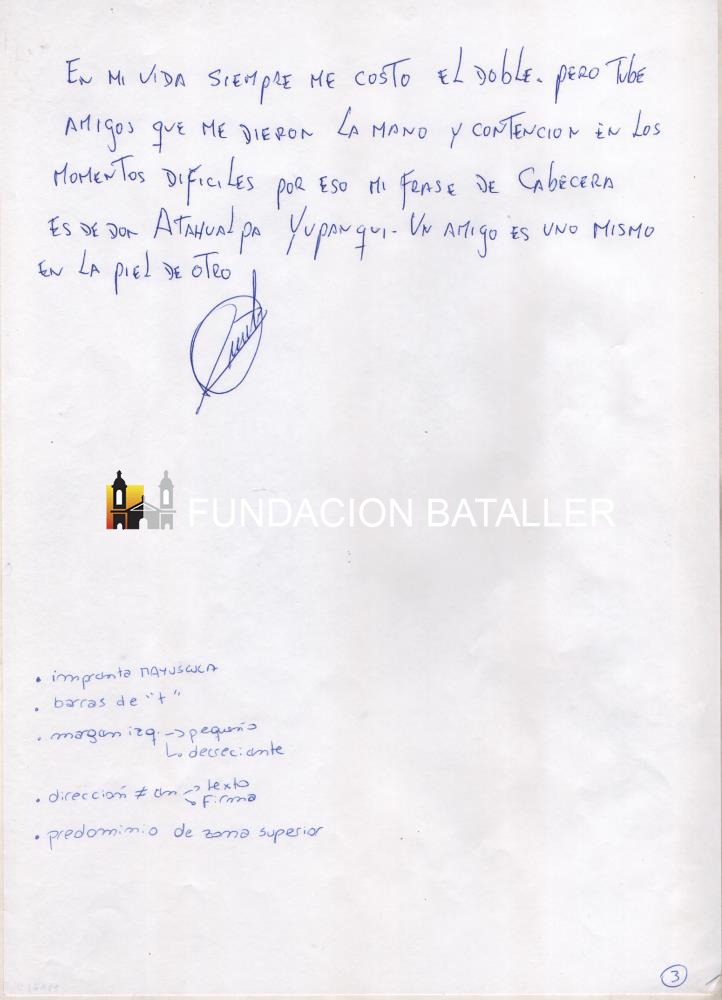 EN MI VIDA SIEMPRE ME COSTO EL DOBLE. PERO TUBE
AMIGOS QUE ME DIERON LA MANO Y CONTENCION EN LOS
MOMENTOS DIFICILES POR ESO MI FRASE DE CABECERA
ES DE DON ATAHUALPA YUPANQUI- UN AMIGO ES UNO MISMO
EN LA PIEL DE OTRO
FUNDACION BATALLER
• imprenta MAYUSCULA
• barras de "t"
• margen izq. -> pequeño
↳ decreciente
• dirección ≠ en -> texto
↘ firma
• predominio de zona superior
3